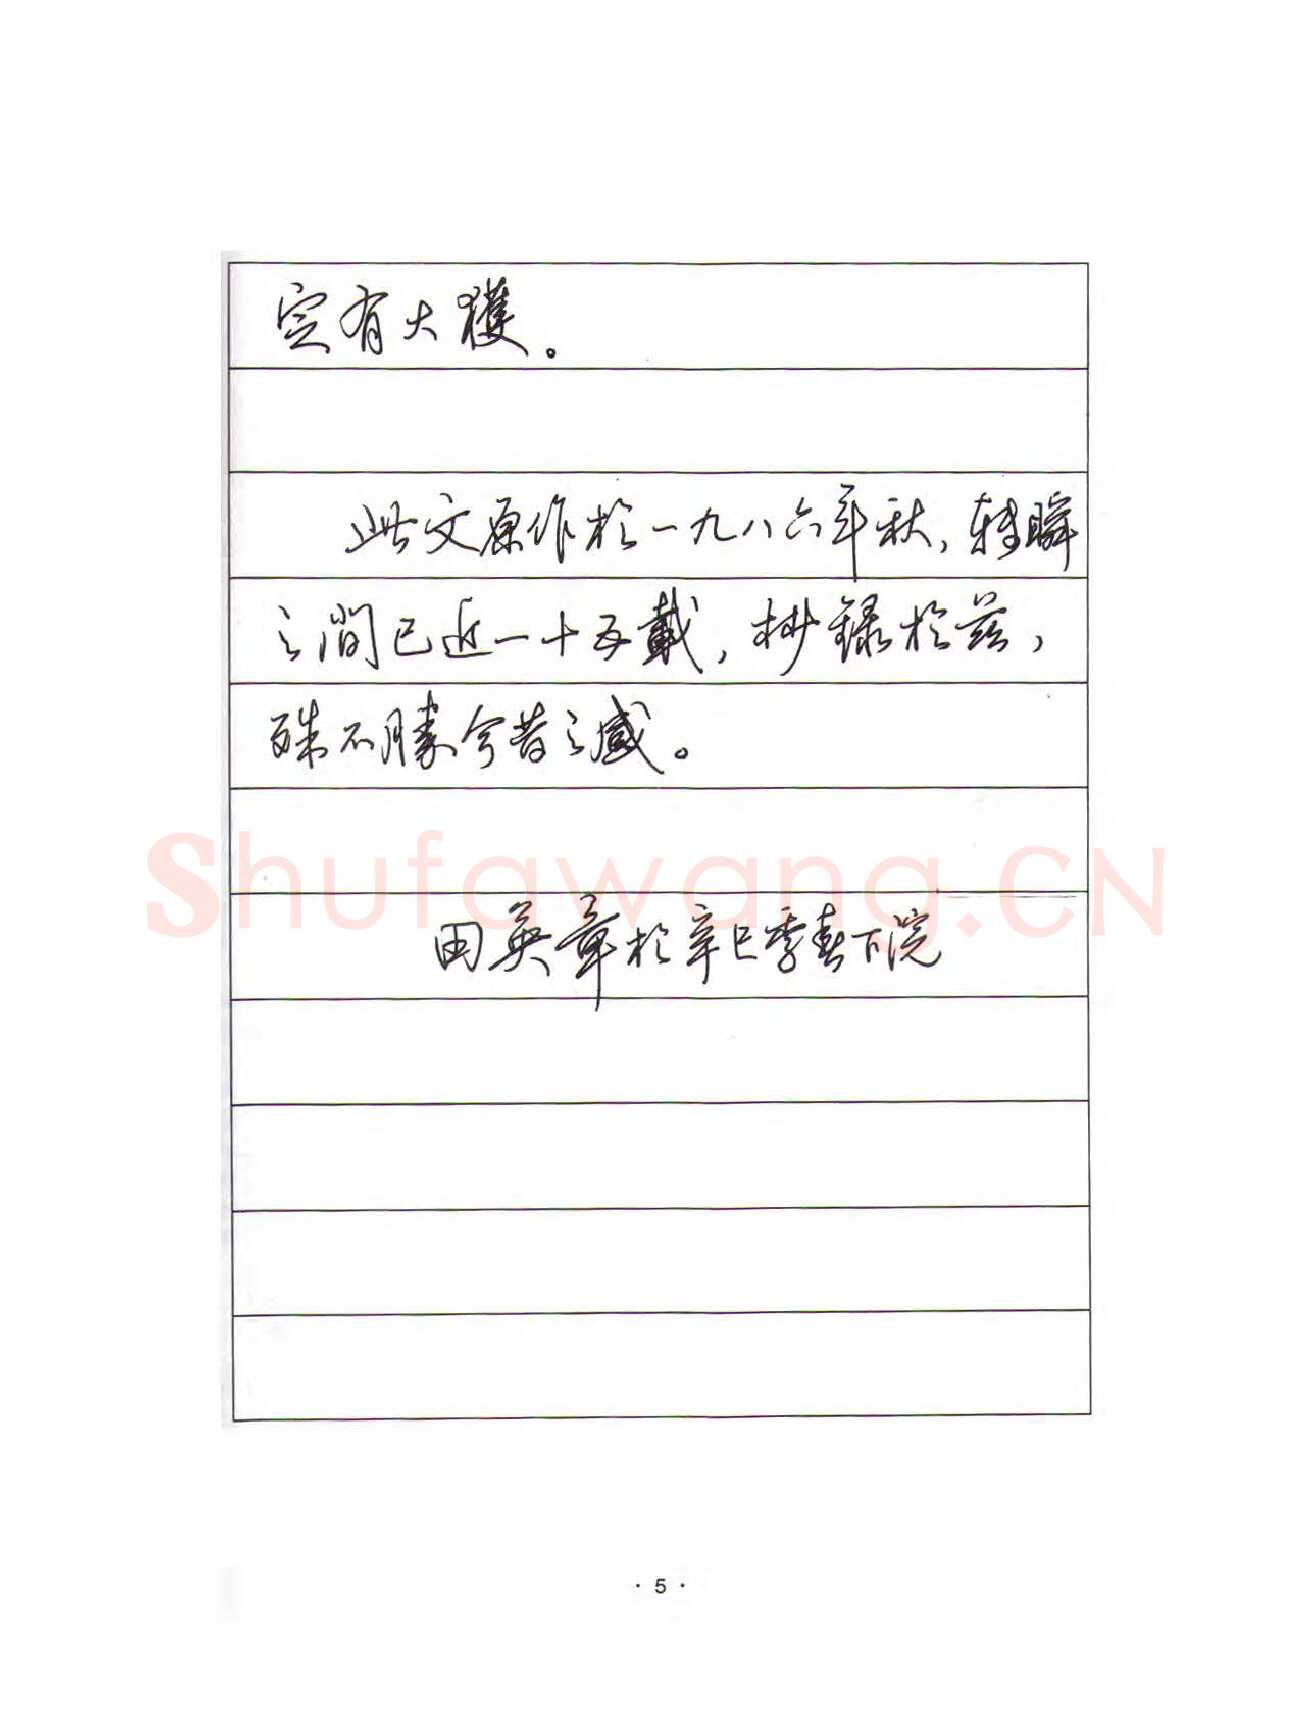 定有大獲。
此文原作於一九八六年秋，转瞬
之间已近一十五載，抄録於兹，
殊不勝今昔之感。
Shufawang.CN
田英章於辛巳季春下浣
· 5 ·